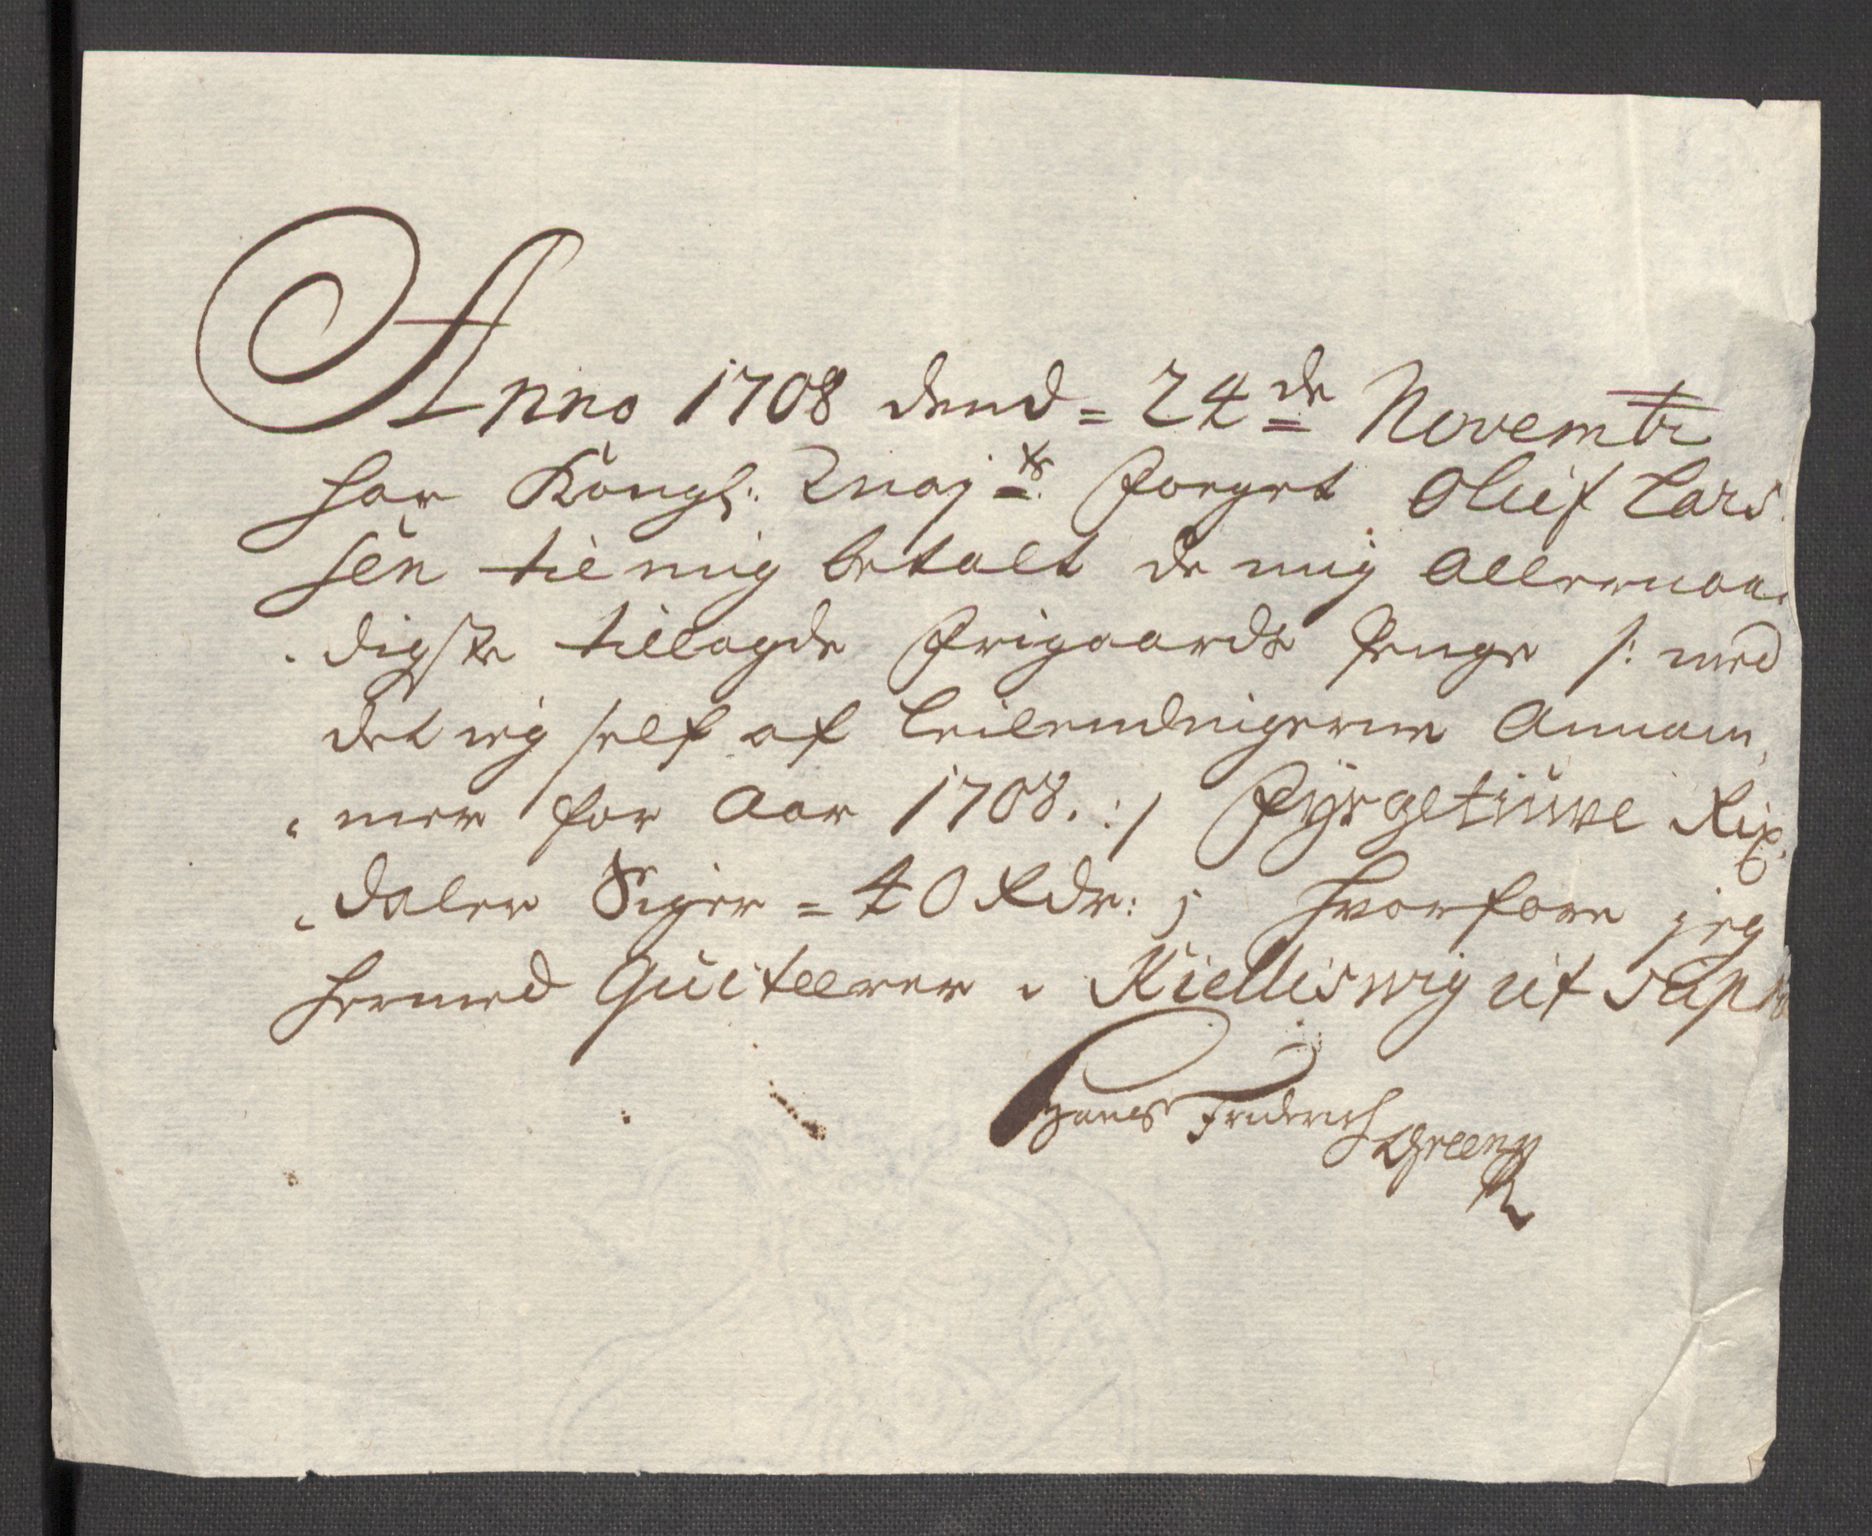 Anno 1708 dend = 24de Novembr
har Kongl: Maj ts: foget Oluf Lars
sen til mig betalt de mig Allernaa
digste tillagde frigaards penge /: med
det ieg self af leilendingerne Annam
mer for Aar 1708. :/ fyrgetiuve Rix
daler Siger = 40 Rdr: ; hvorfore jeg
hermed Quiteerer. Kielliswig ut supra
Hans Friderich Greeny